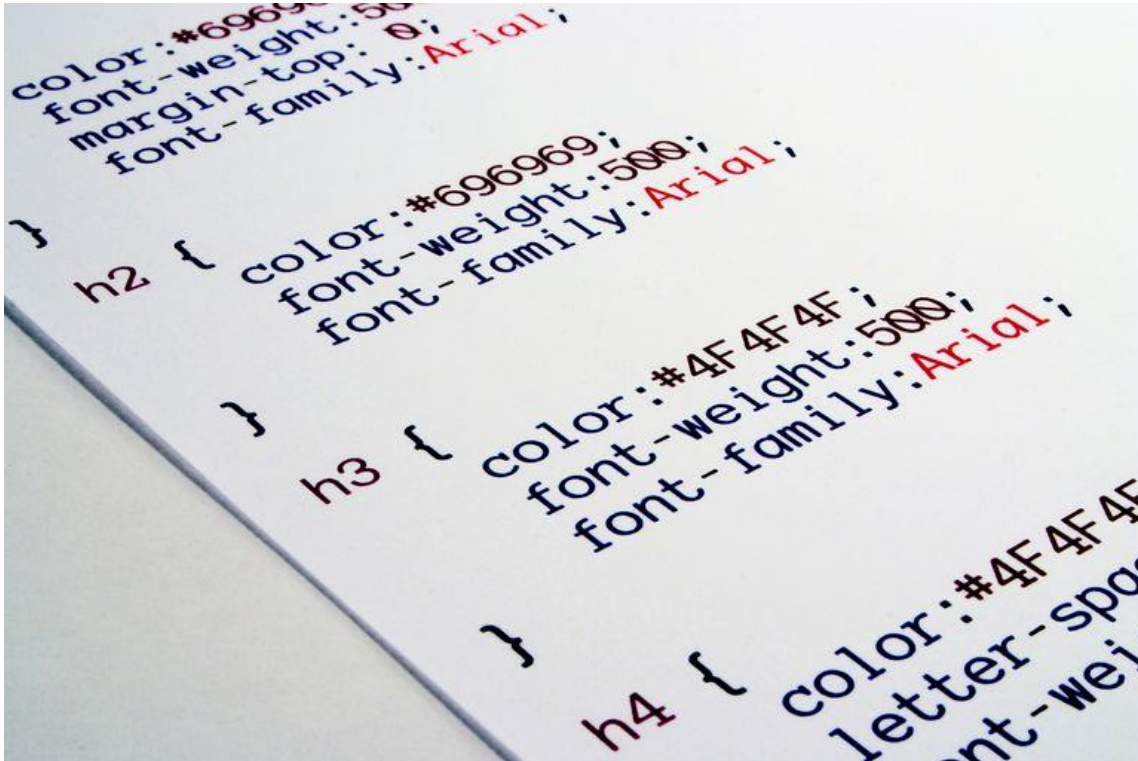 color:#69696
font-weight:50
margin-top: 0;
font-family:Arial;
}
h2 { color:#696969;
font-weight:500;
font-family:Arial;
}
h3 { color:#4F4F4F;
font-weight:500;
font-family:Arial;
}
h4 { color:#4F4F4F
letter-spa
nt-wei